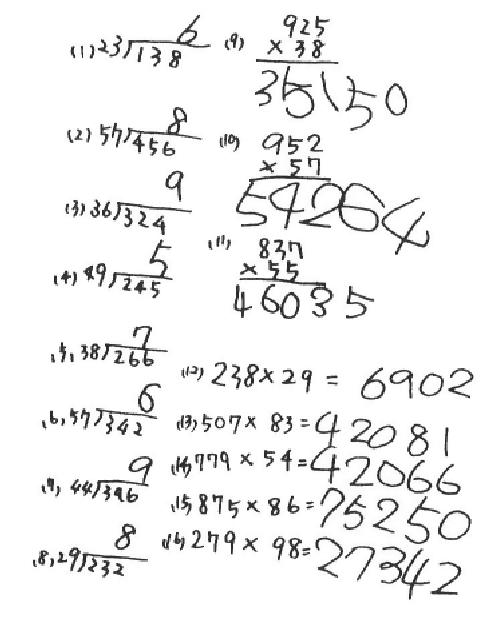 (1) 23)138 6
(2) 57)456 8
(3) 36)324 9
(4) 49)245 5
(5) 38)266 7
(6) 57)342 6
(7) 44)396 9
(8) 29)232 8
(9) 925
× 38
35150
(10) 952
× 57
54264
(11) 837
× 55
46035
(12) 238 × 29 = 6902
(13) 507 × 83 = 42081
(14) 779 × 54 = 42066
(15) 875 × 86 = 75250
(16) 279 × 98 = 27342